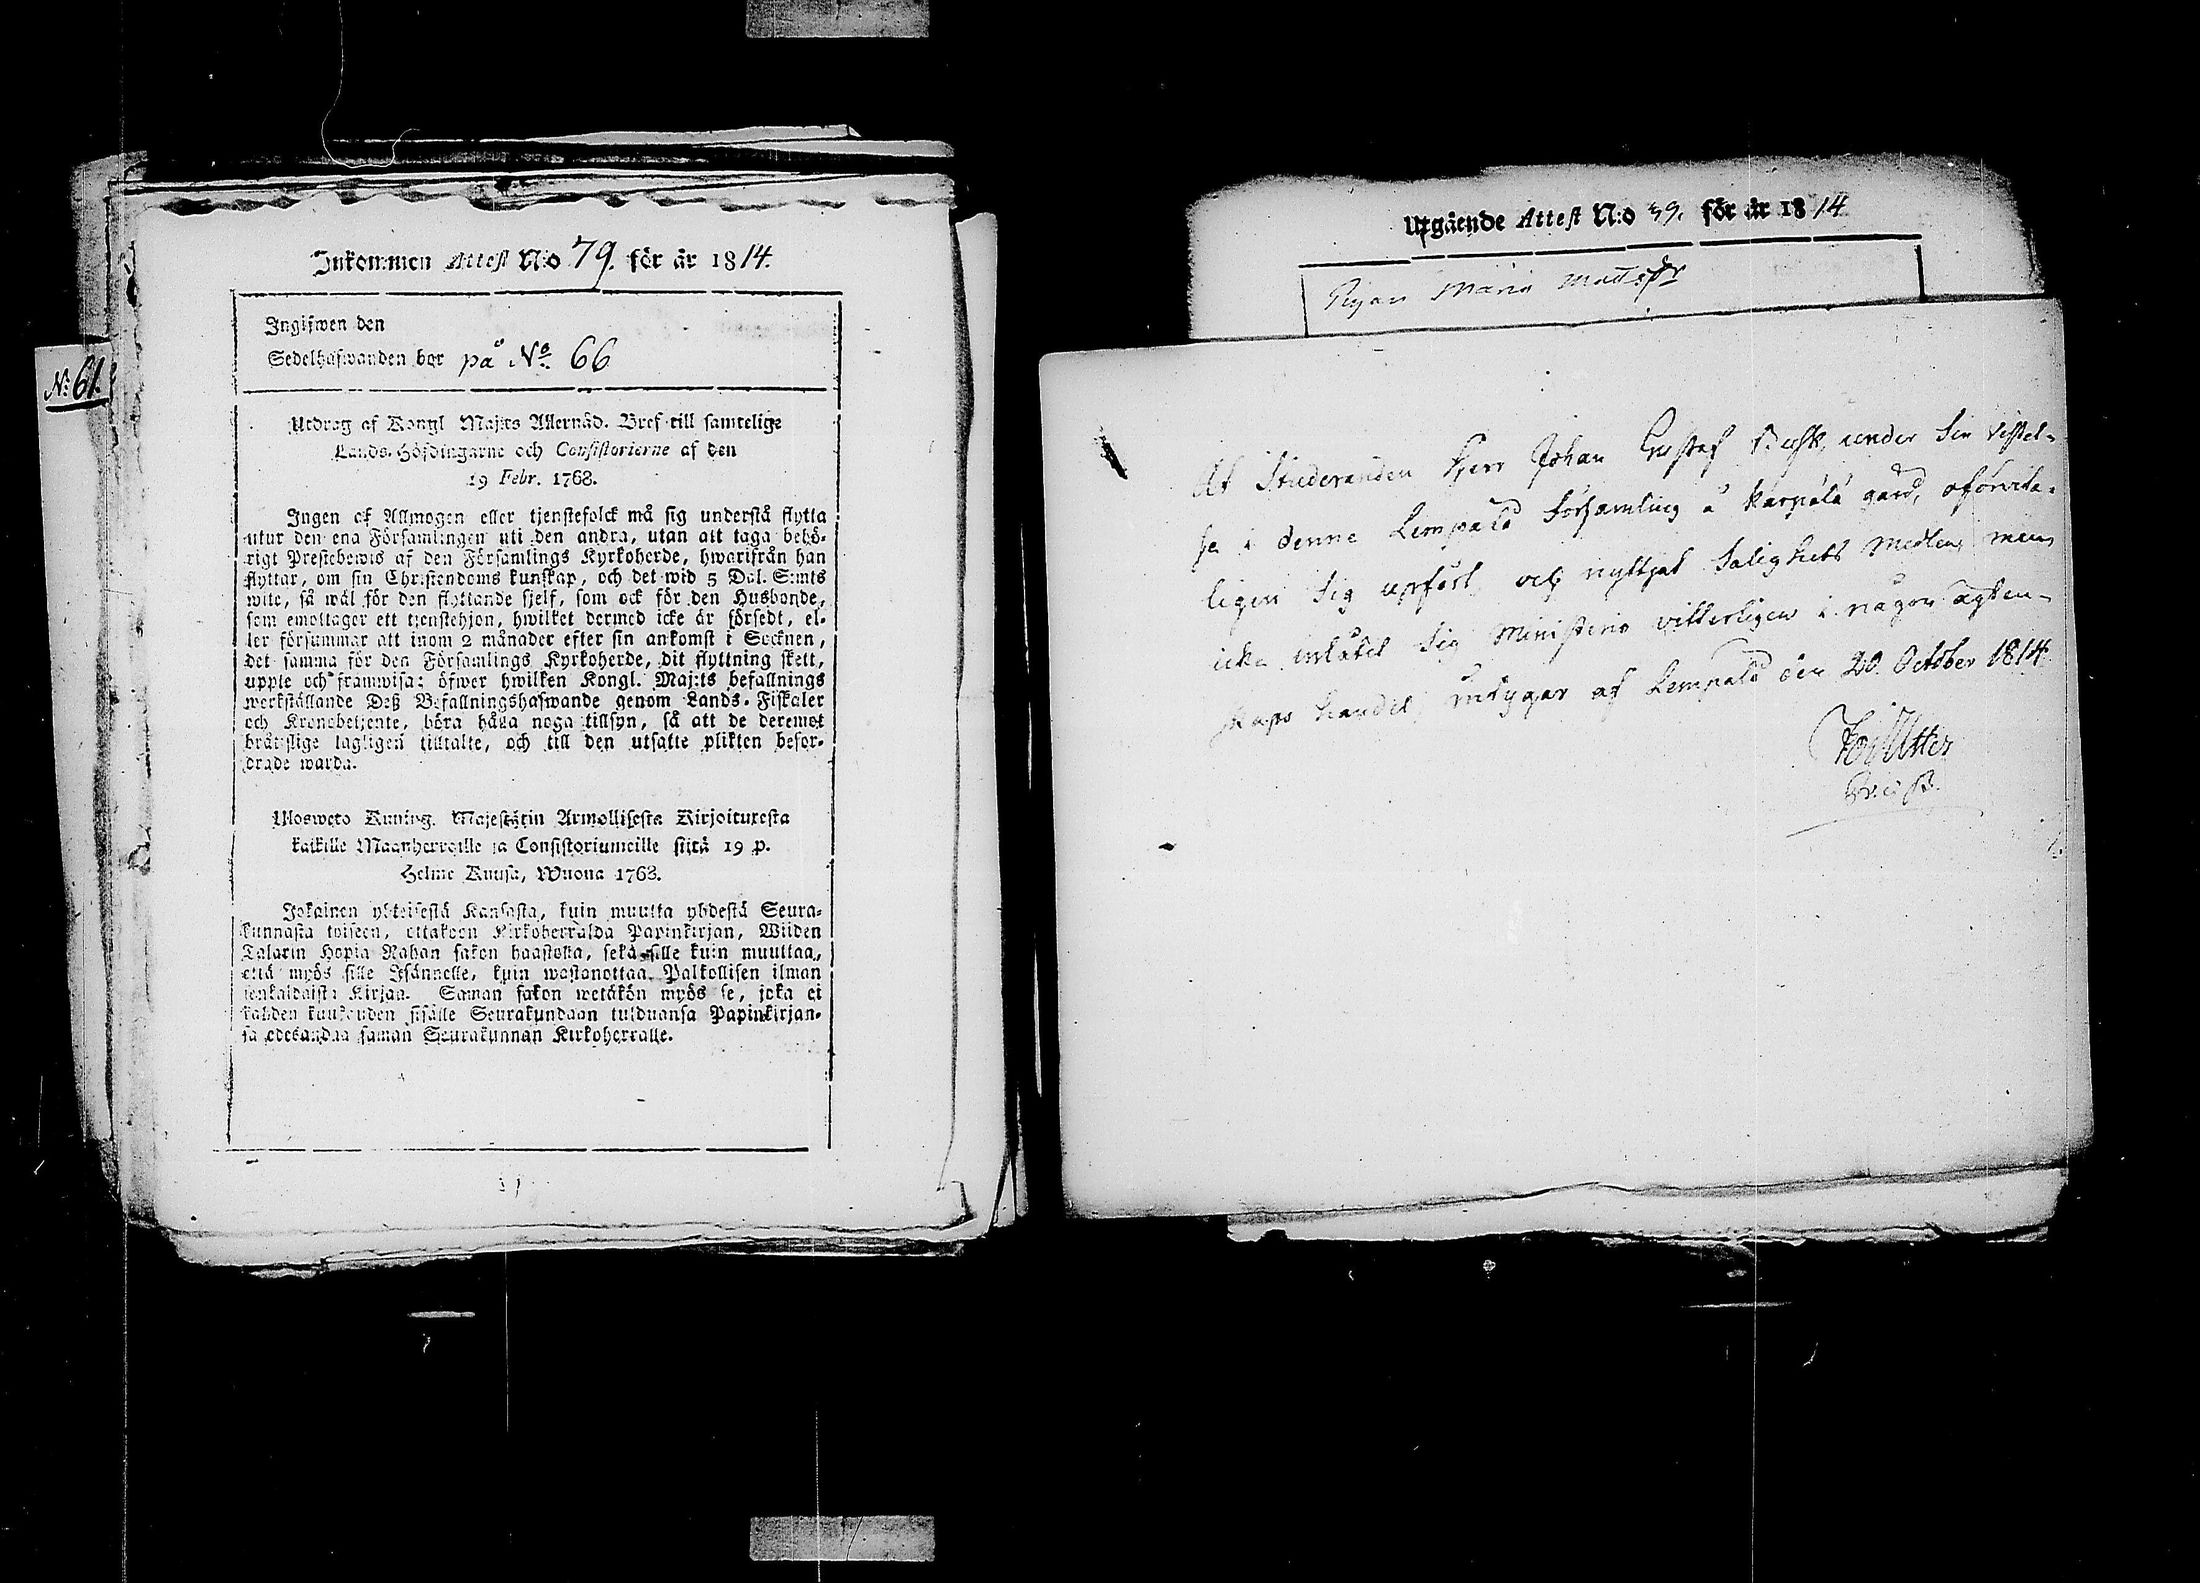 N:61.
Inkommen Attest N:o 79. för år 1814.
Ingifwen den
Sedelhafwanden bor på No. 66
Utdrag af Kongl Maj:ts Allernåd. Bref till samtelige
Lands-Höfdingarne och Consistorierne af den
19 Febr. 1768.
Ingen af Allmogen eller tjenstefolck må sig understå flytta
utur den ena Församlingen uti den andra, utan att taga behö-
rigt Prestebewis af den Församlings Kyrkoherde, hwarifrån han
flyttar, om sin Christendoms kunskap, och det wid 5 Dal. S:mts
wite, så wäl för den flyttande sjelf, som ock för den Husbonde,
som emottager ett tjenstehjon, hwilket dermed icke är försedt, el-
ler försummar att inom 2 månader efter sin ankomst i Socknen,
det samma för den Församlings Kyrkoherde, dit flyttning skett,
uppte och framwisa: öfwer hwilken Kongl. Maj:ts befallnings
werkställande Deß Befallningshafwande genom Lands-Fiskaler
och Kronobetjente, böra hålla noga tillsyn, så att de deremot
bråtslige lagligen tilltalte, och till den utsatte plikten befor-
drade warda.
Uloswето Kuning. Majestätin Armollisesta Kirjoituxesta
kaikille Maanherroille ja Consistoriumeille siitä 19 p.
Helme Kuusa, Wuona 1768.
Jokainen yhteisestä Kansasta, kuin muutta yhdestä Seura-
kunnasta toiseen, ottakoon Kirkoherralda Papinkirjan, Wiiden
Talarin Hopia Rahan sakon haastolla, sekä sille kuin muuttaa,
että myös sille Isännelle, kuin wastanottaa Palkollisen ilman
senkaldaista Kirjaa. Saman sakon wetäkön myös se, joka ei
kahden kuukauden sisälle Seurakundaan tulduansa Papinkirjan-
sa edesandaa saman Seurakunnan Kirkoherralle.
Utgående Attest N:o 39. för år 1814
Pigan Maria Mattsdr
At Studeranden Herr Johan Gustaf under sin vistel-
se i denne Lempälä Församling å Karpälä gård, oförvite-
ligen sig upfört, och nyttjat Salighets Medlen, men
icke inlåtit sig Ministerio vitterligen i någon ägten-
skaps handel, intygar af Lempälä den 20 October 1814.